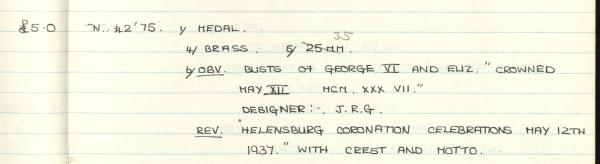 35
£5.0 N. 42'75. 1/ MEDAL.
4/ BRASS. 5/ 25 MM.
6/ OBV. BUSTS OF GEORGE VI AND ELIZ. "CROWNED
MAY XII MCM. XXX VII."
DESIGNER :-. J.R.G.
REV. "HELENSBURG CORONATION CELEBRATIONS MAY 12TH
1937." WITH CREST AND MOTTO.